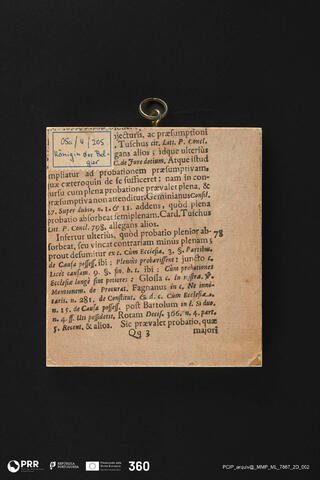 05a / 4 / 205
Königin der Bel-
gier
jecturis, ac præsumptioni
. Tuschus cit. Lit. P. Concl.
egans alios; idque ulterius
C. de Jure dotium. Atque istud
ampliatur ad probationem præsumptivam,
quæ cæteroquin de se sufficeret; nam in con-
cursu cum plena probatione prævalet plena, &
præsumptiva non attenditur. Geminianus Consil.
17. Super dubio, n. 1. & 11. addens, quòd plena
probatio absorbeat semiplenam. Card. Tuschus
Lit. P. Concl. 798. allegans alios.
Infertur ulterius, quòd probatio plenior ab- 78
sorbeat, seu vincat contrariam minus plenam,
prout desumitur ex c. Cùm Ecclesia, 3. §. Partibus.
de Causa possess. ibi: Pleniùs probarissent: juncto c.
Licèt causam. 9. §. fin. h. t. ibi: Cùm probationes
Ecclesiæ longè sint potiores: Glossa c. In nostra.
Mentonem. de Procurat. Fagnanus in c. Ne inni-
taris. n. 281. de Constitut. & d. c. Cùm Ecclesia.
n. 15. de Causa possess. post Bartolum in l. Si duo.
n. 4. ff. Uti possidetis, Rotam Decis. 366. n. 4. part.
5. Recent. & alios. Sic prævalet probatio, quæ
Qq 3 majori
PRR
REPÚBLICA
PORTUGUESA
360
PCIP_arquiv@_MMP_ML_7867_2D_002